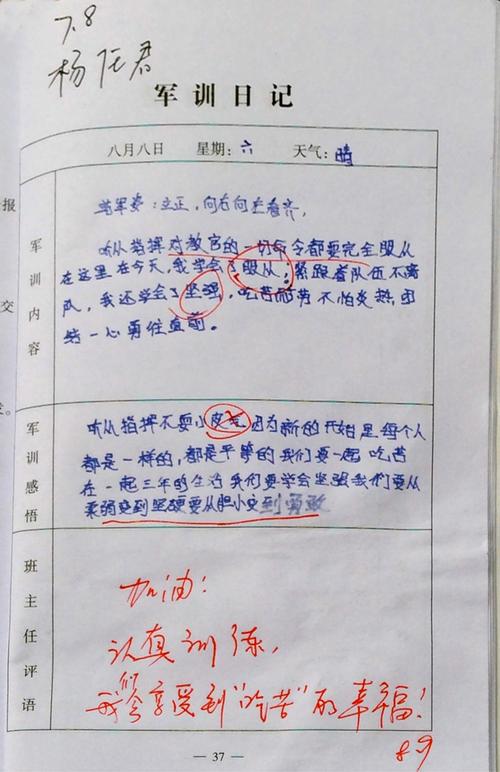 7.8
杨任君
军训日记
八月八日 星期：六 天气：晴
报
交
军训内容
站军姿：立正，向右向左看齐，
听从指挥对教官的一切命令都要完全服从
在这里在今天，我学会了服从；紧跟着队伍不离
队，我还学会了坚强，吃苦耐劳不怕炎热团
结一心勇往直前。
军训感悟
听从指挥不耍小皮气因为新的开始里每个人
都是一样的，都是平等的我们要一起吃苦
在一起三年的生活我们要学会坚强我们要从
柔弱变到坚硬要从胆小变到勇敢
班主任评语
加油！
认真训练，
我们会享受到“吃苦”的幸福！
8.9
— 37 —